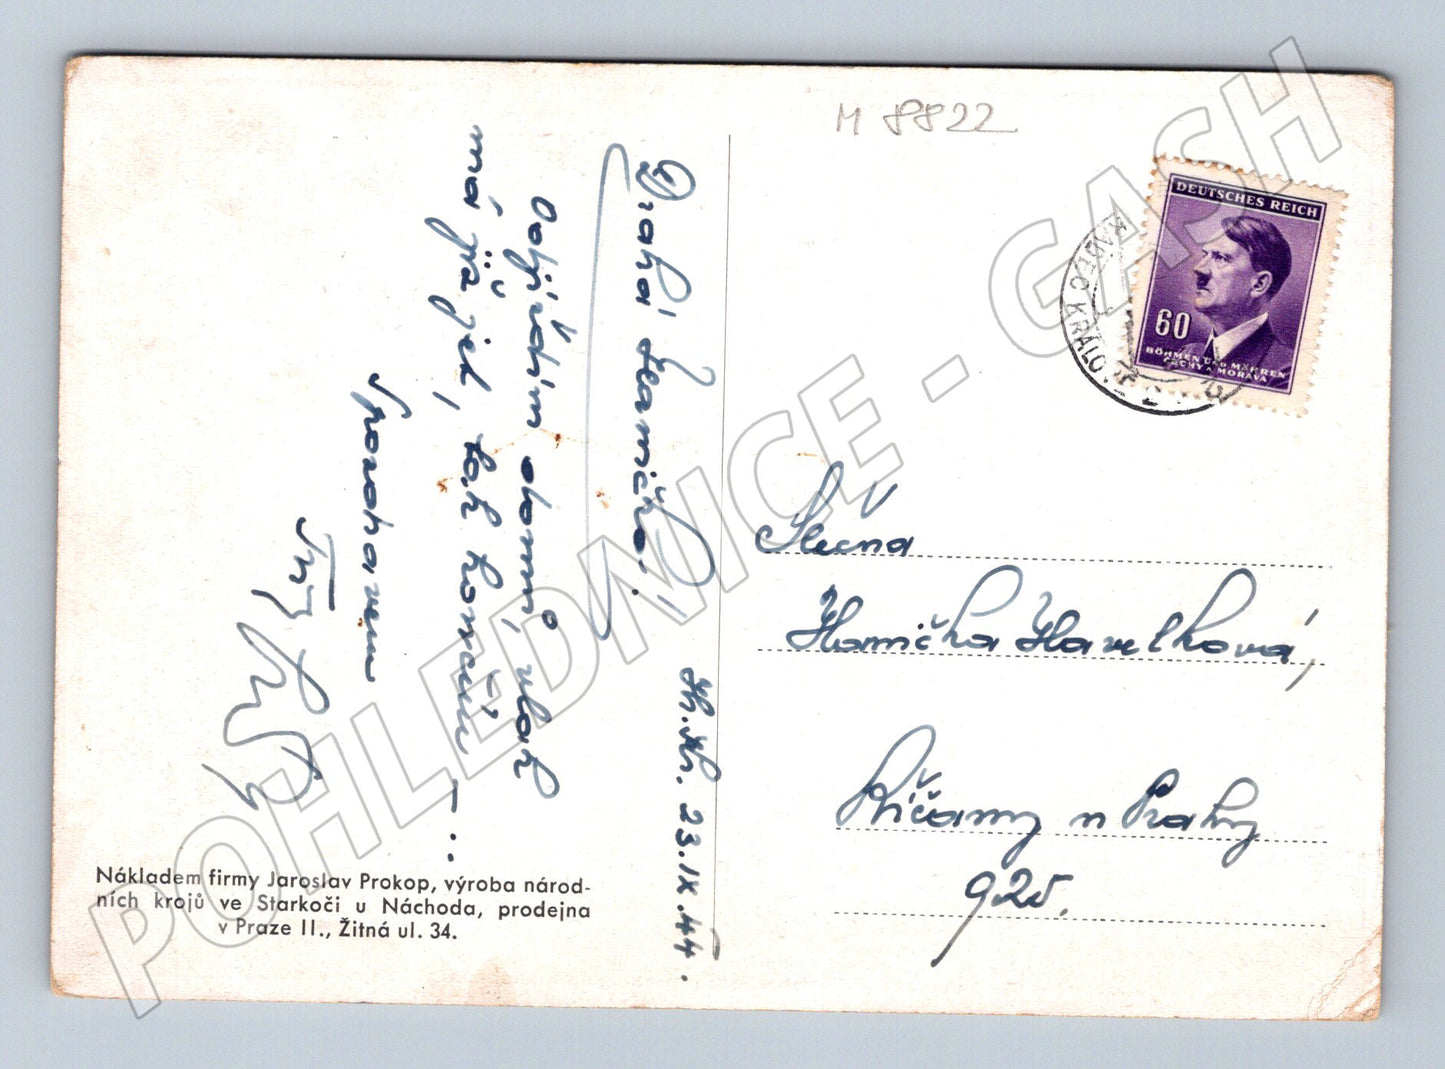 M 8822
DEUTSCHES REICH
60
BÖHMEN UND MÄHREN
ČECHY A MORAVA
KRÁLOVÉ
Drahá Haničko!
Odjíždím domů, vlak
má již jet, tak končím ...
Sbohem
Tvůj
Hr. Kr. 23.IX.44.
Slečna
Hanička Havelková,
Říčany u Prahy
925.
Nákladem firmy Jaroslav Prokop, výroba národ-
ních krojů ve Starkoči u Náchoda, prodejna
v Praze II., Žitná ul. 34.
POHLEDNICE - GASH